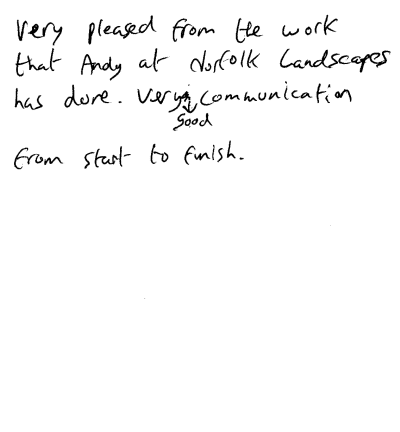 Very pleased from the work
that Andy at Norfolk Landscapes
has done. Very communication
Good
from start to finish.